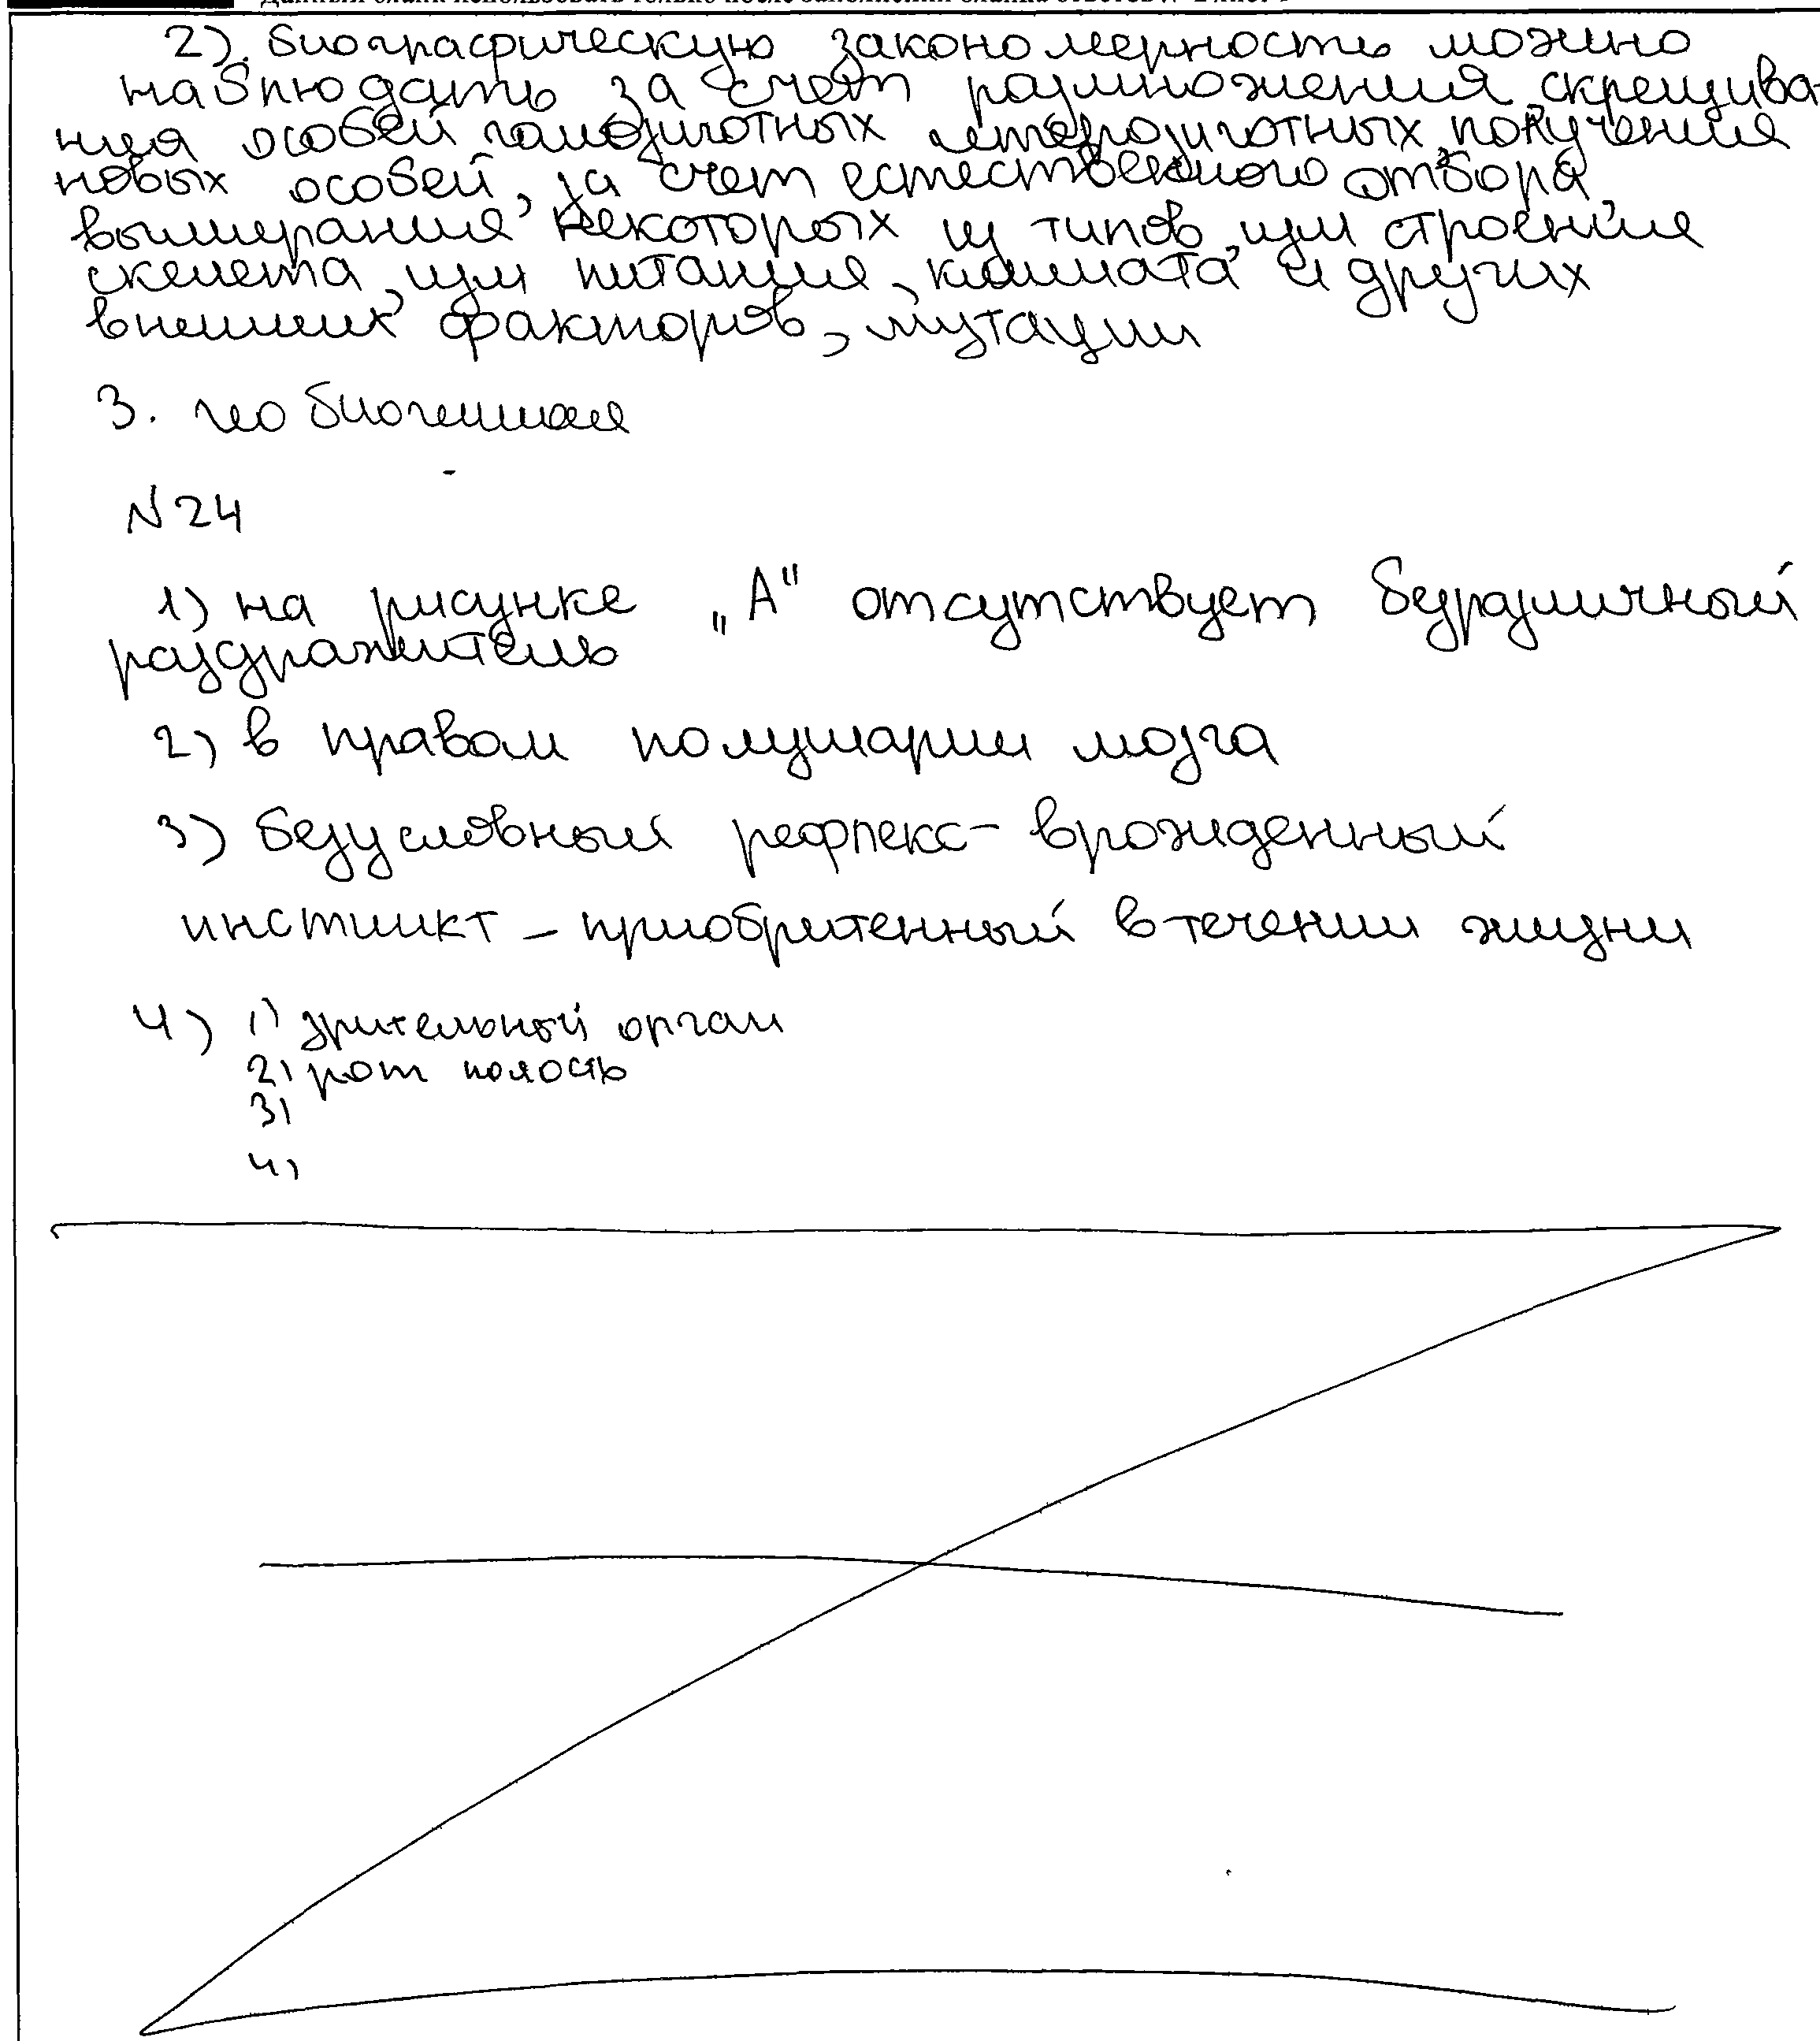 Данный бланк использовать только после заполнения бланка ответов № 2 лист 1
2). биографическую закономерность можно
наблюдать за счет размножения, скрещива-
ния особей гомозиготных, гетерозиготных, получения
новых особей, за счет естественного отбора,
вымирания некоторых из типов, изм строения
скелета, изм питания, климата и других
внешних факторов, мутации
3. геобиогенная
N 24
1) на рисунке „А" отсутствует безразличный
раздражитель
2) в правом полушарии мозга
3) безусловный рефлекс - врожденный
инстинкт - приобритенный в течении жизни
4) 1) зрительный орган
2) рот полость
3)
4)